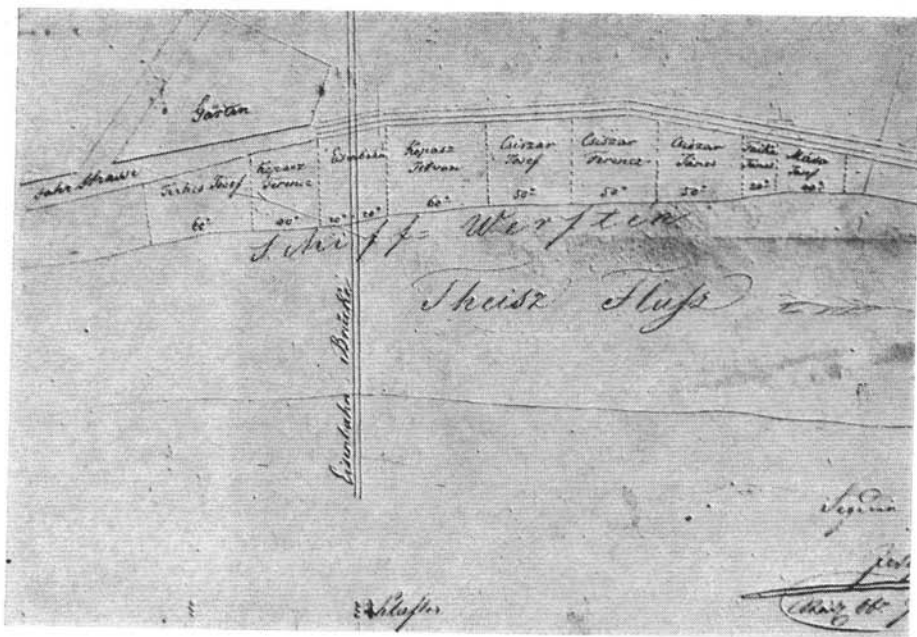 Gärten
fahr Strasse
Terhes Josef
60°
Kopasz
Ferencz
40°
Eisenbahn
20° 20°
Kopasz
Istvan
60°
Csiszar
Josef
50°
Csiszar
Ferencz
50°
Csiszar
János
50°
János
20°
Josef
40°
Schiff- Werften
Theisz Flusz
Eisenbahn Brücke
Klafter